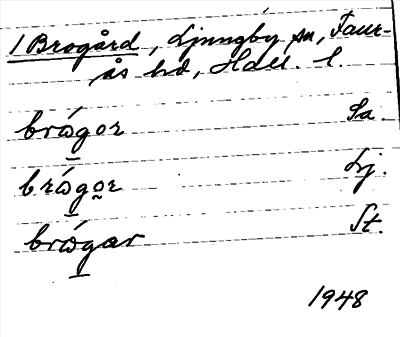 1 Brogård, Ljungby sn, Faur-
ås hd, Hall. l.
brǿgor Sa.
brǿgo̰r Lj.
brǿgar St.
1948